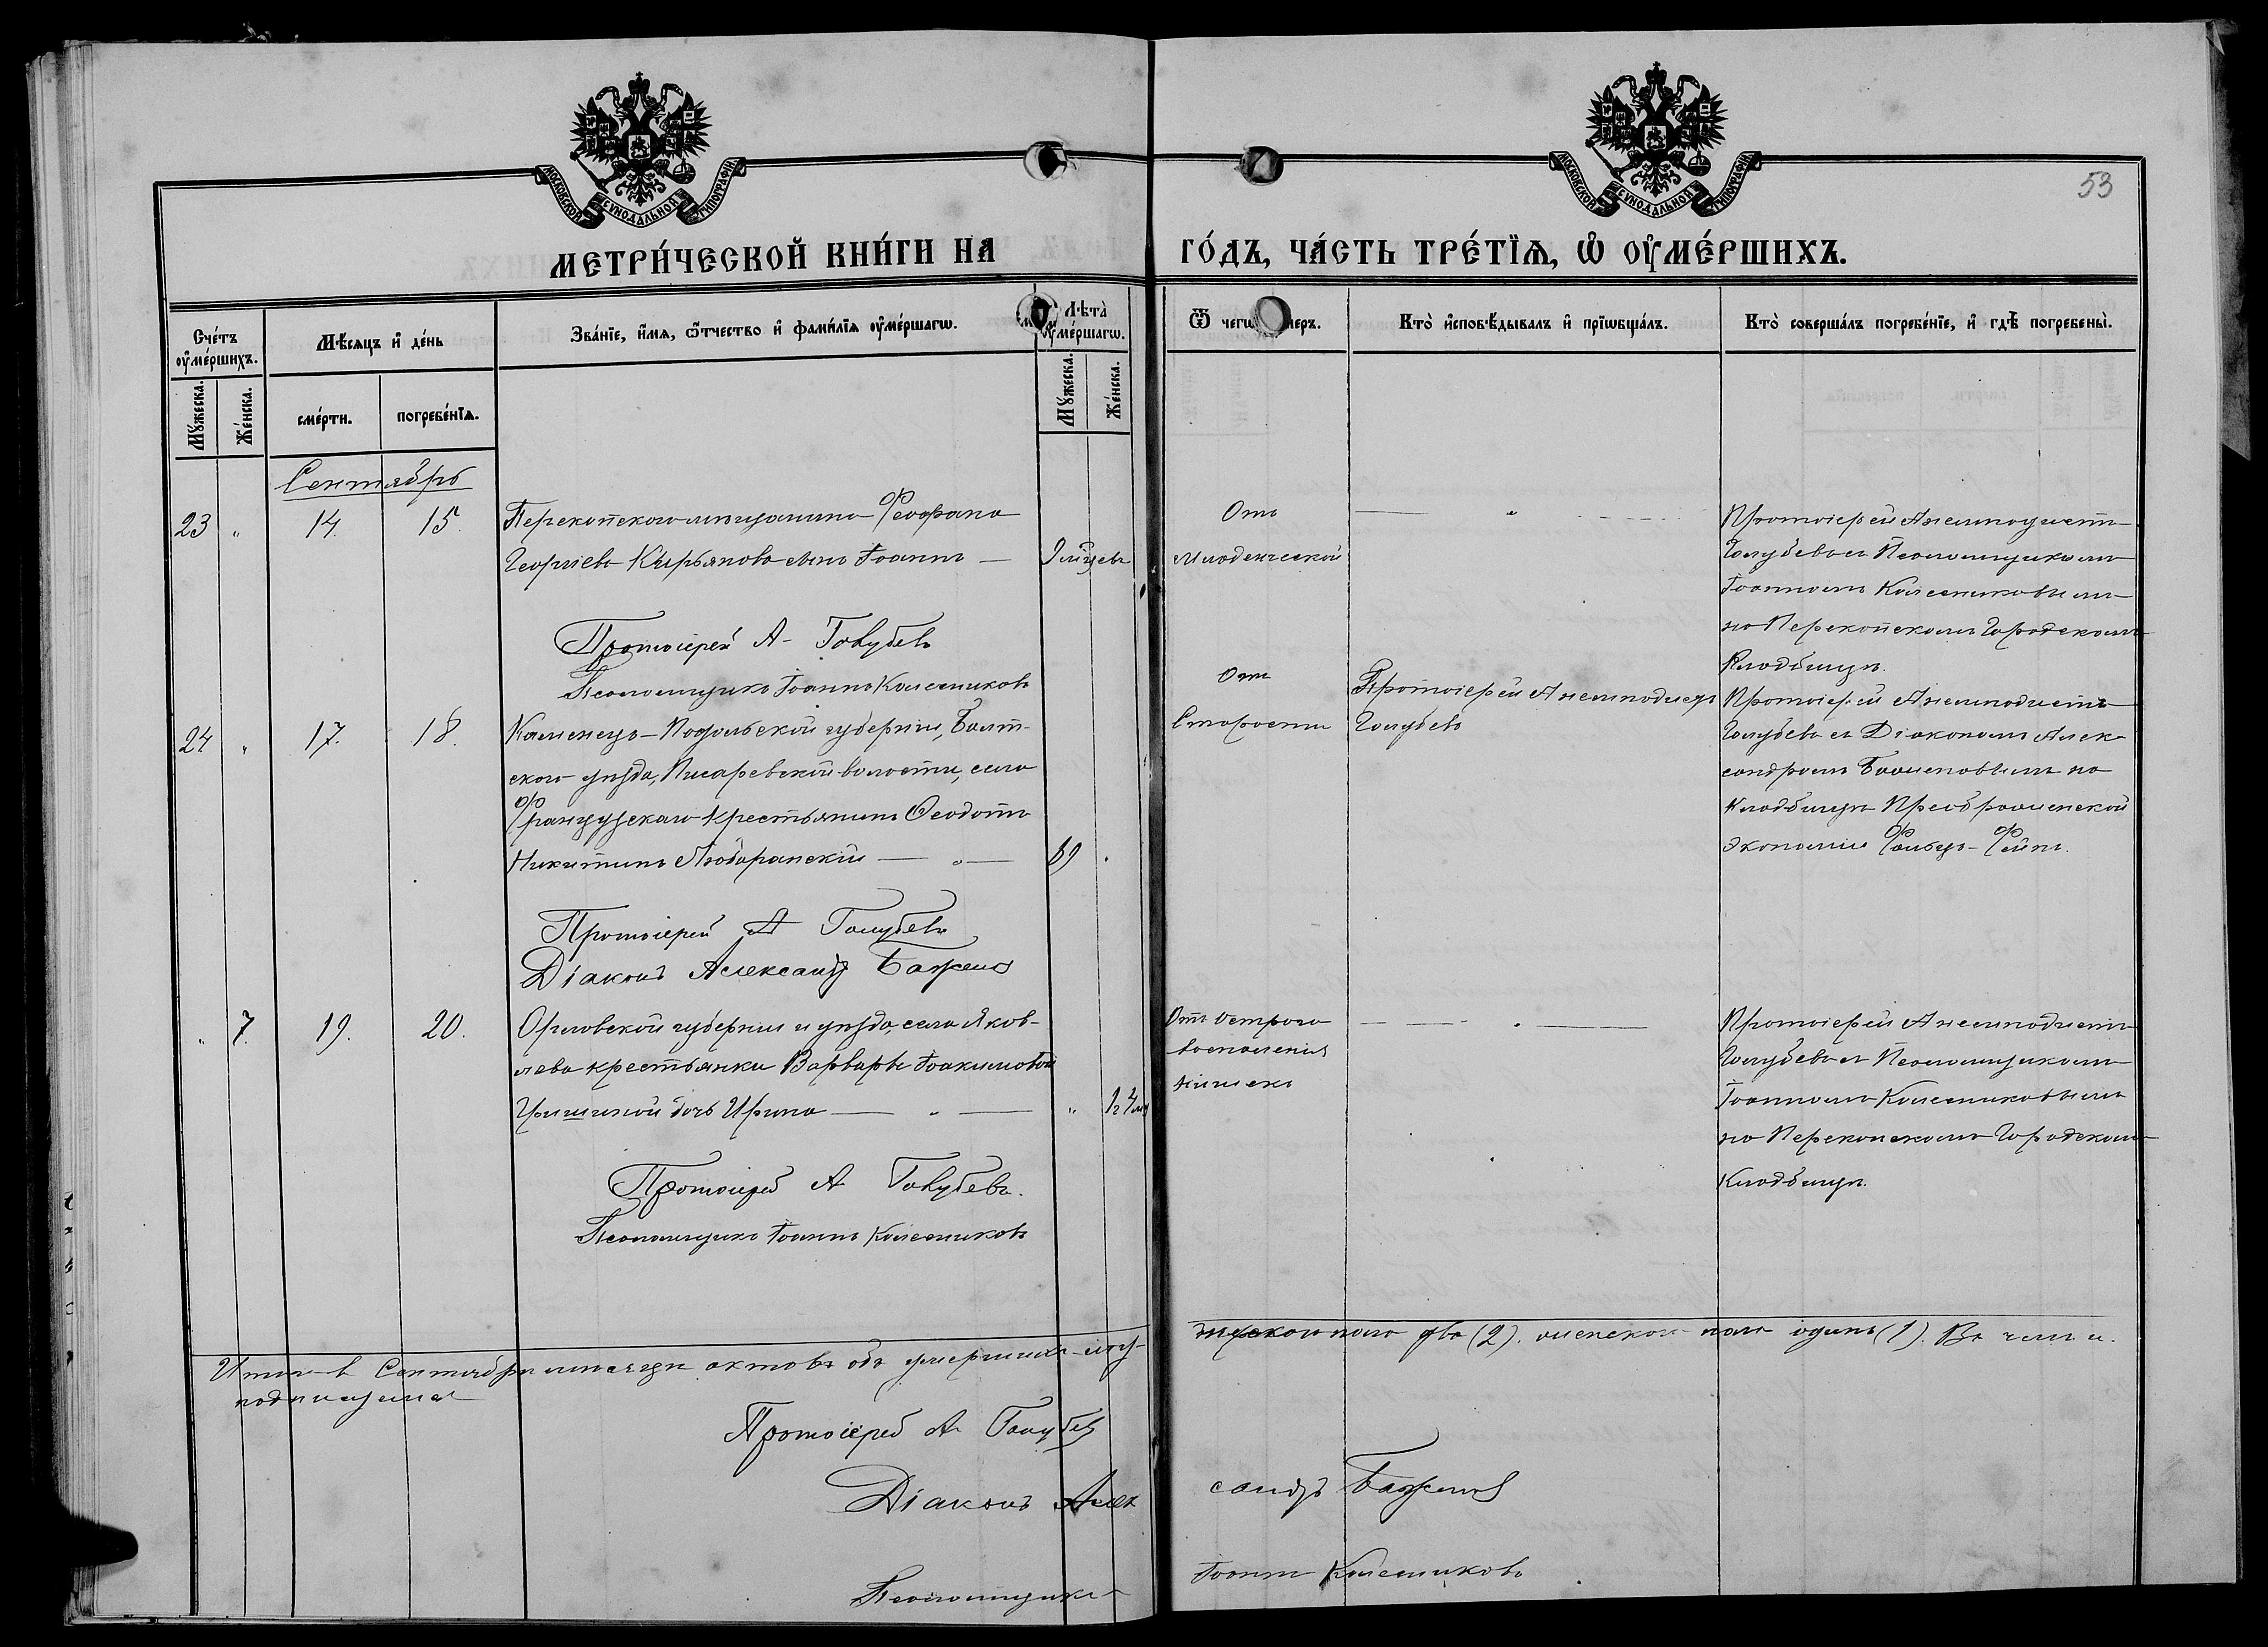 МОСКОВСКОЙ СѴНОДАЛЬНОЙ ТИПОГРАФІИ
МОСКОВСКОЙ СѴНОДАЛЬНОЙ ТИПОГРАФІИ
53
МЕТРИ́ЧЕСКОЙ КНИ́ГИ НА ГО́ДЪ, ЧА́СТЬ ТРЕ́ТІѦ, Ѡ҆ ОУ҆МЕ́РШИХЪ.
Сче́тъ оу҆ме́ршихъ.
Мѣ́сяцъ и҆ де́нь
Зва́нїе, и҆мѧ, ѻ҆́тчество и҆ фами́лїѧ оу҆ме́ршагѡ.
Лѣта̀ оу҆ме́ршагѡ.
Ѿ чегѡ̀ меръ.
Кто̀ и҆сповѣ́дывалъ и҆ прїѡбща́лъ.
Кто̀ соверша́лъ погребе́нїе, и҆ гдѣ̀ погребены̀.
Мꙋжеска.
Же́нска.
сме́рти.
погребе́нїѧ.
Мꙋжеска.
Же́нска.
Сентябрь
23 " 14. 15. Перекопскаго мѣщанина Феофана
Георгіева Кирьянова сынъ Іоаннъ — 9 мѣсяц.
Отъ
младенческой
— " —
Протоіерей Анемподистъ
Голубевъ съ Псаломщикомъ
Іоанномъ Колесниковымъ
на Перекопскомъ Городскомъ
Кладбищѣ.
Протоіерей А. Голубевъ
Псаломщикъ Іоаннъ Колесниковъ
24 " 17. 18. Каменецъ-Подольской губерніи, Балт-
скаго уѣзда, Писаревской волости, села
Французскаго крестьянинъ Ѳеодотъ
Никитинъ Любаранскій — " — 69 .
Отъ
Старости
Протоіерей Анемподистъ
Голубевъ
Протоіерей Анемподистъ
Голубевъ съ Діакономъ Алек-
сандромъ Баженовымъ на
Кладбищѣ Преображенской
экономіи Фальцъ-Фейнъ.
Протоіерей А Голубевъ
Діаконъ Александръ Баженовъ
" 7. 19. 20. Орловской губерніи и уѣзда, села Яков-
лева крестьянки Варвары Іоакимовой
дочь Ирина — " — " 1 г 4 м
Отъ остраго
воспаленія
кишекъ
— " —
Протоіерей Анемподистъ
Голубевъ съ Псаломщикомъ
Іоанномъ Колесниковымъ
на Перекопскомъ Городскомъ
Кладбищѣ.
Протоіерей А Голубевъ.
Псаломщикъ Іоаннъ Колесниковъ
Итого въ Сентябрѣ мѣсяцѣ актовъ объ умершихъ му-
жескаго пола два (2). женскаго пола одинъ (1). Въ чемъ и
подпишемся
Протоіерей А Голубевъ
Діаконъ Александръ Баженовъ
Псаломщикъ Іоаннъ Колесниковъ